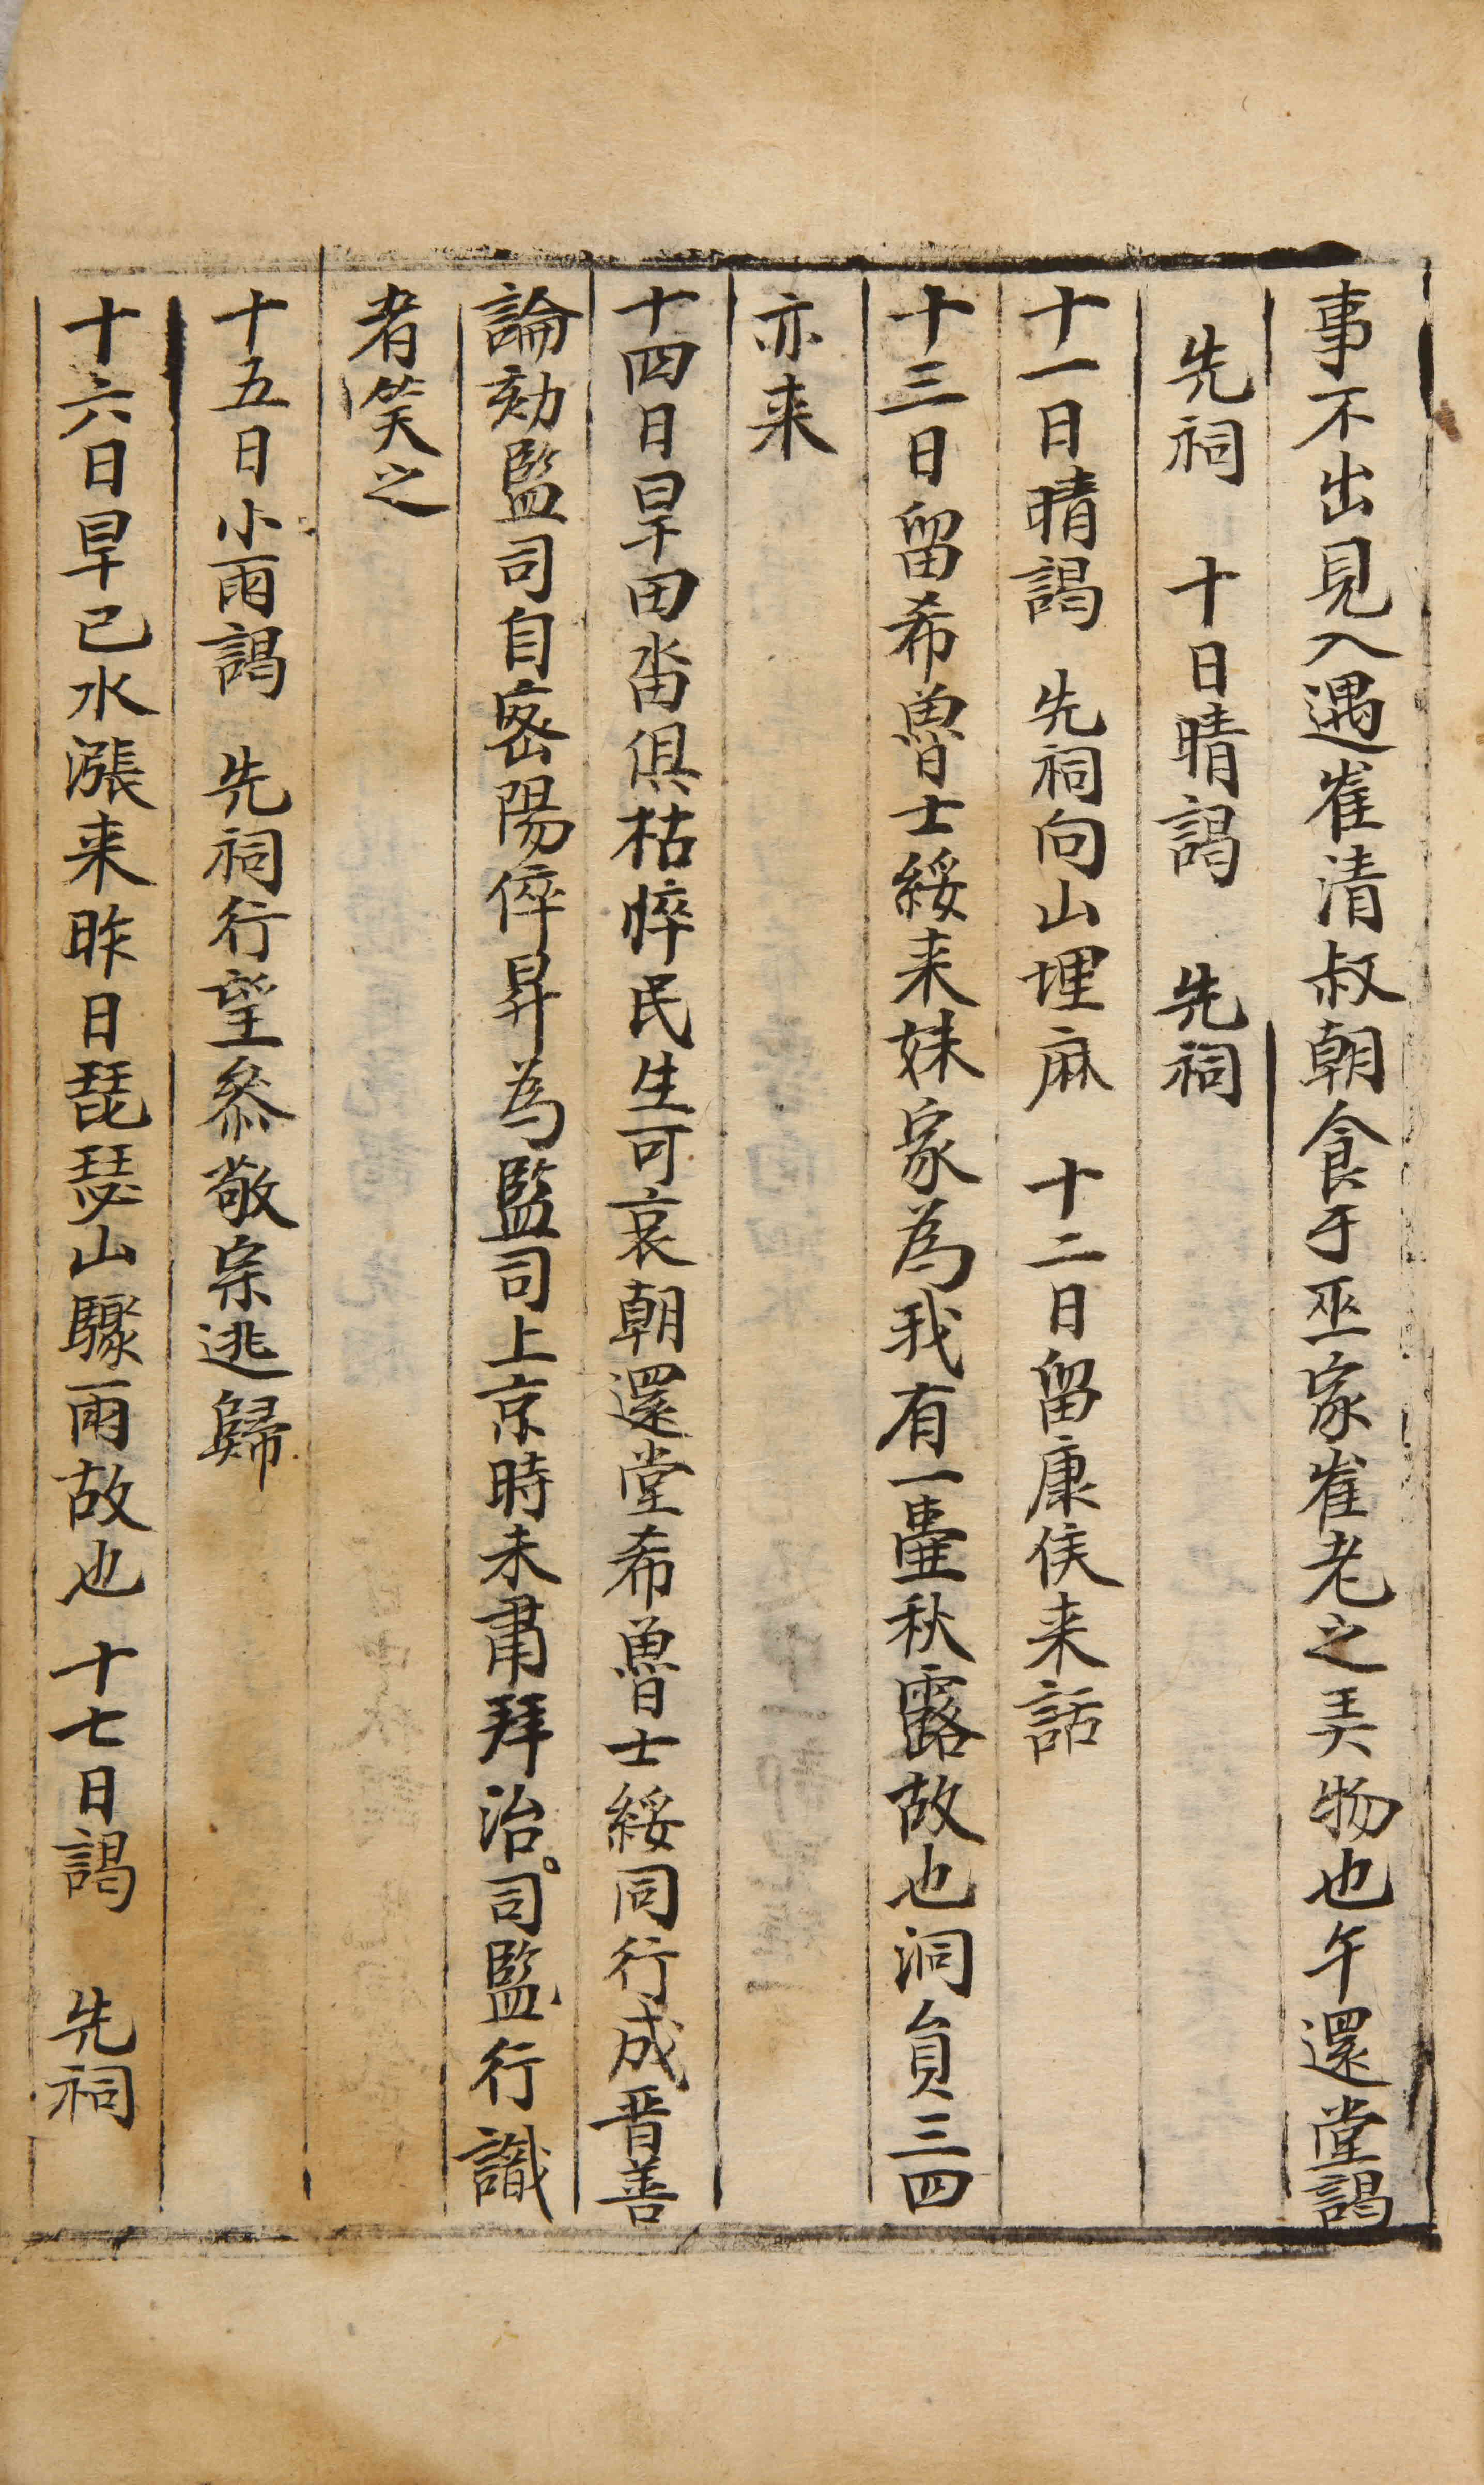 事不出見入遇崔清叔朝食于巫家崔老之弄物也午還堂謁
先祠 十日晴謁 先祠
十一日晴謁 先祠向山埋麻 十二日留康侯来話
十三日留希魯士綏来妹家為我有一壷秋露故也洞員三四
亦来
十四日旱田畓俱枯悴民生可哀朝還堂希魯士綏同行成晋善
論劾監司自密陽倅昇為監司上京時未肅拜治司監行識
者笑之
十五日小雨謁 先祠行望叅敬宗逃歸
十六日早已水漲来昨日琵瑟山驟雨故也 十七日謁 先祠